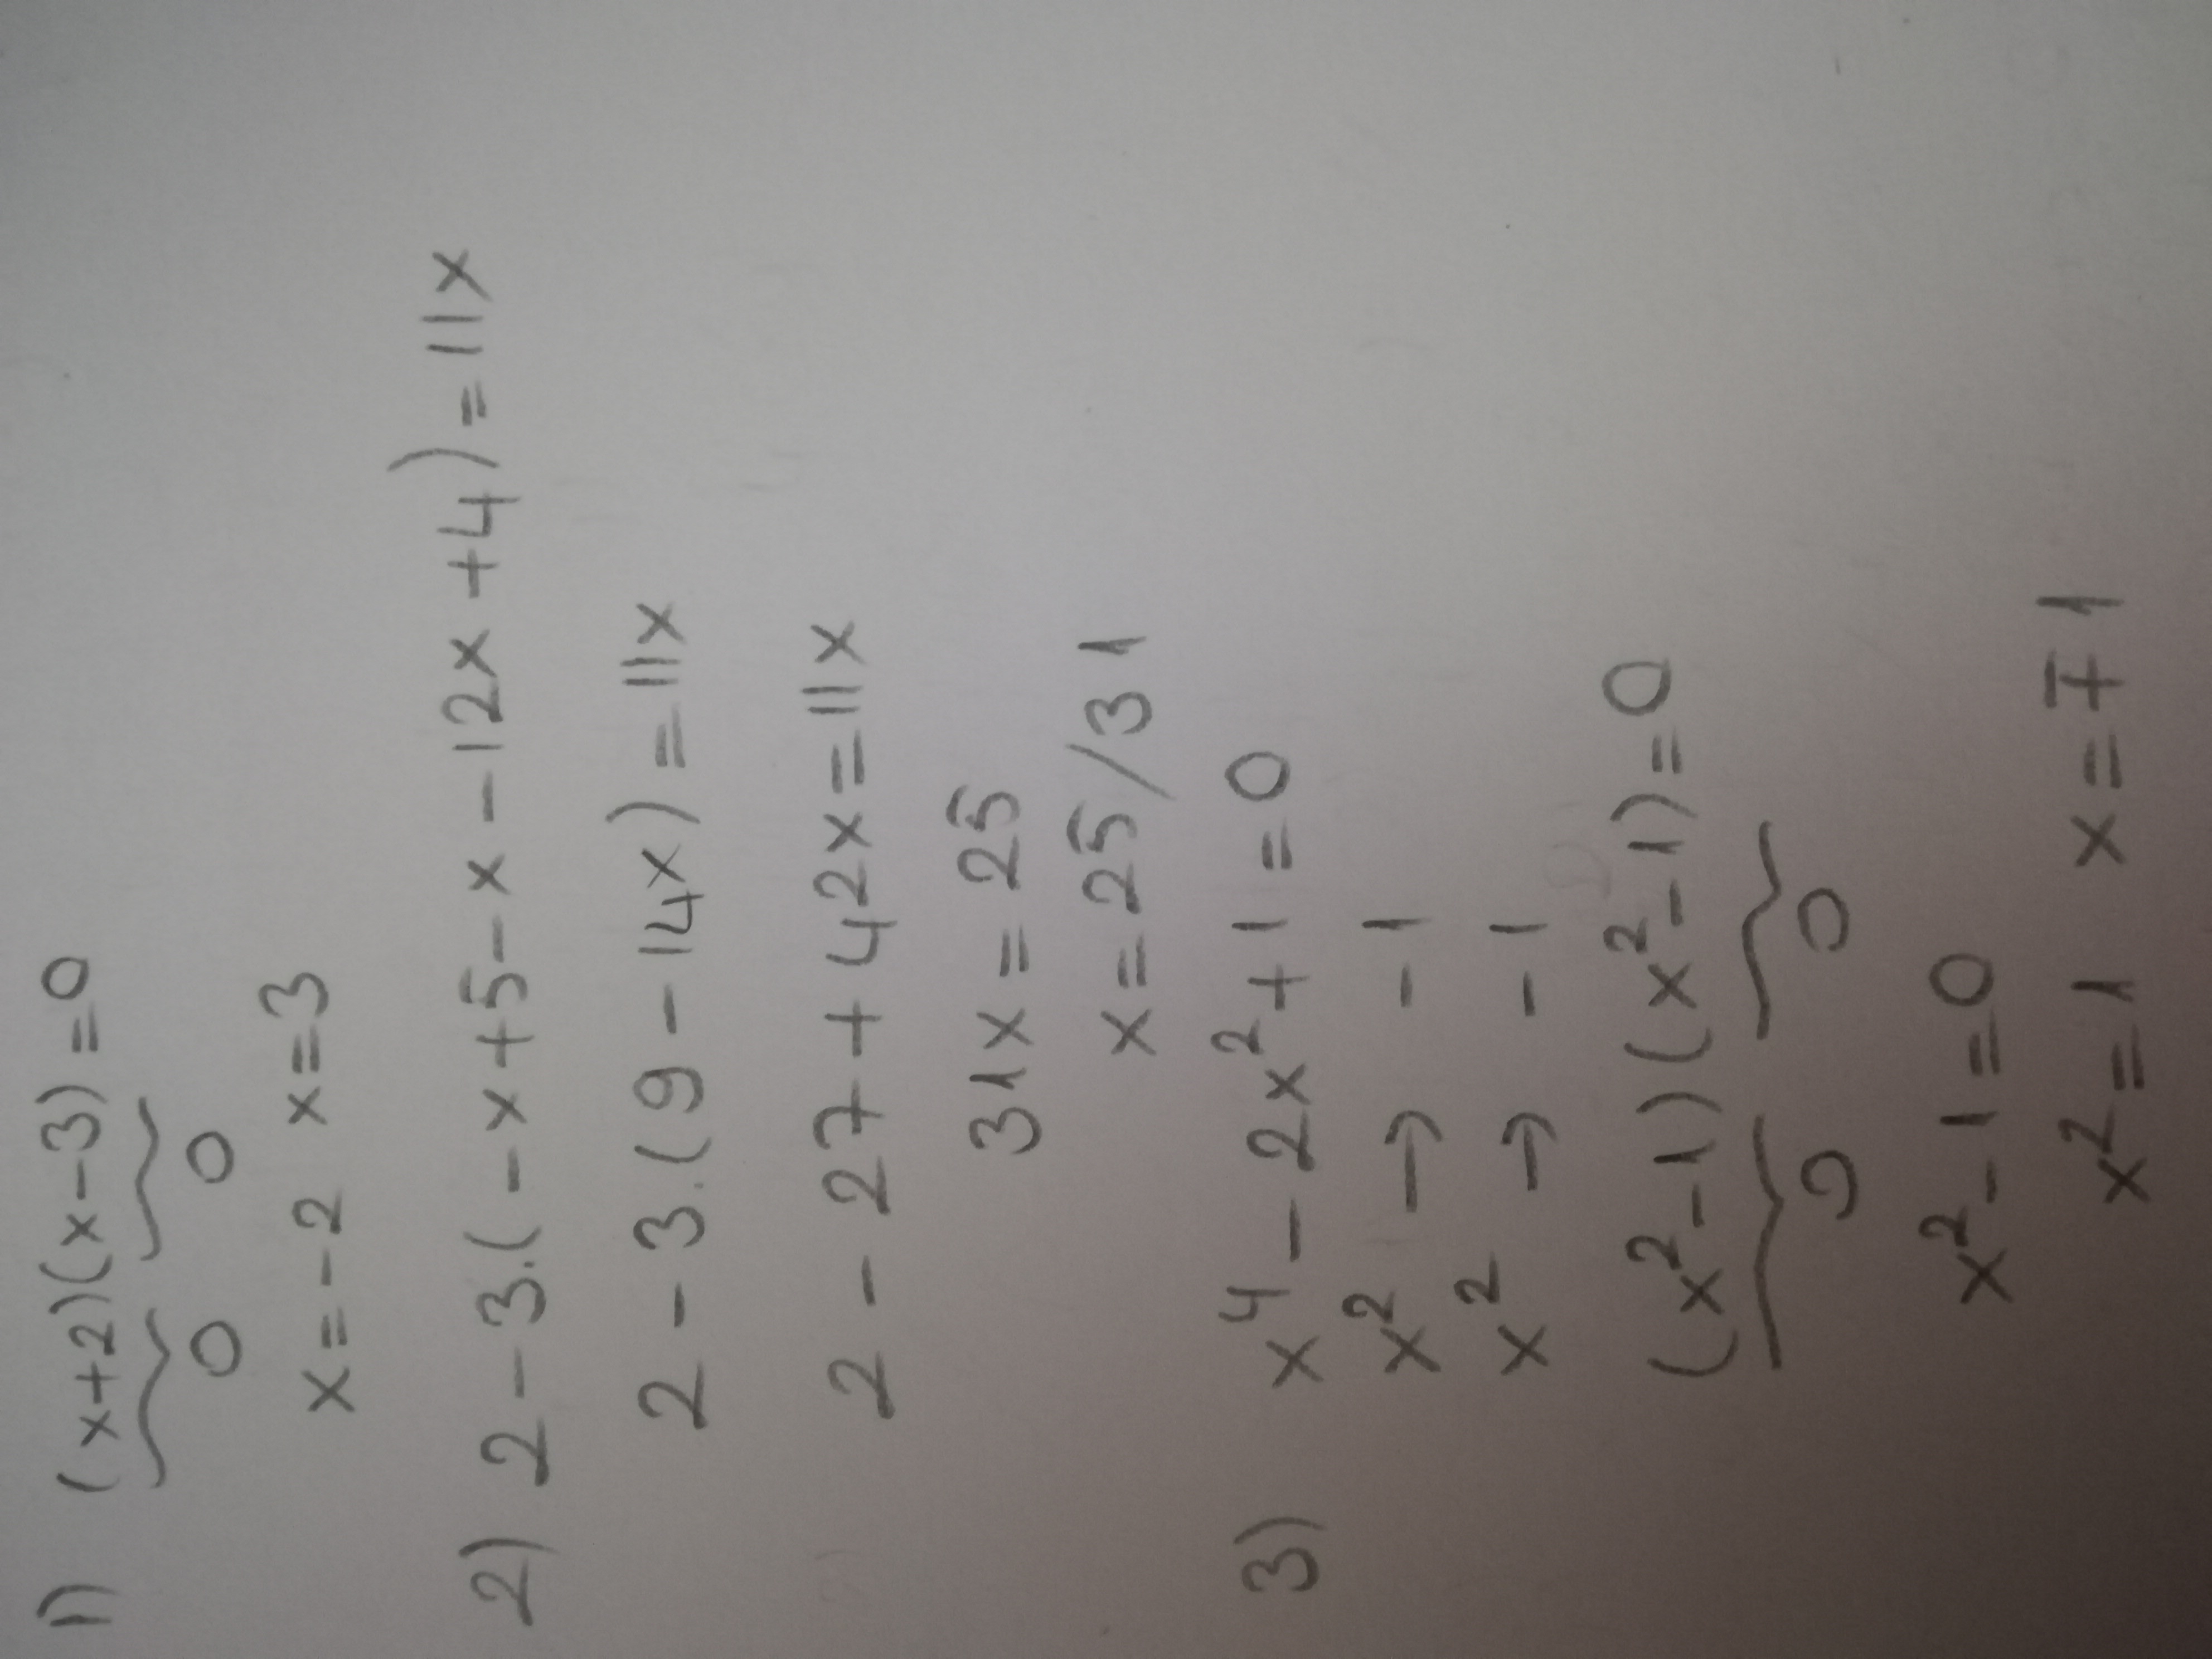 1) (x+2)(x-3)=0
0 0
x=-2 x=3
2) 2-3.(-x+5-x-12x+4)=11x
2-3.(9-14x)=11x
2-27+42x=11x
31x=25
x=25/31
3) x⁴-2x²+1=0
x² → -1
x² → -1
(x²-1)(x²-1)=0
0 0
x²-1=0
x²=1 x=∓1